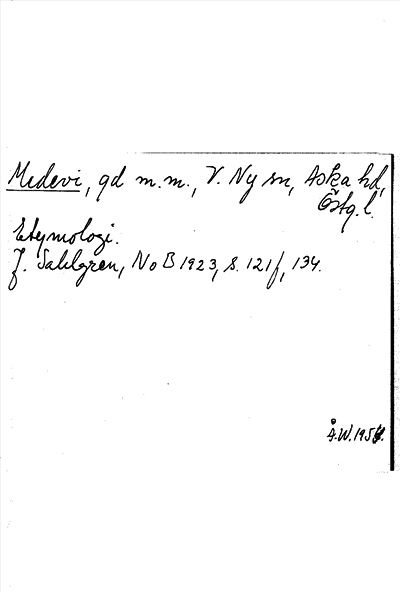 Medevi, gd m.m., V. Ny sn, Aska hd,
Östg.l.
Etymologi.
J. Sahlgren, NoB 1923, s. 121f, 134.
Å.W.